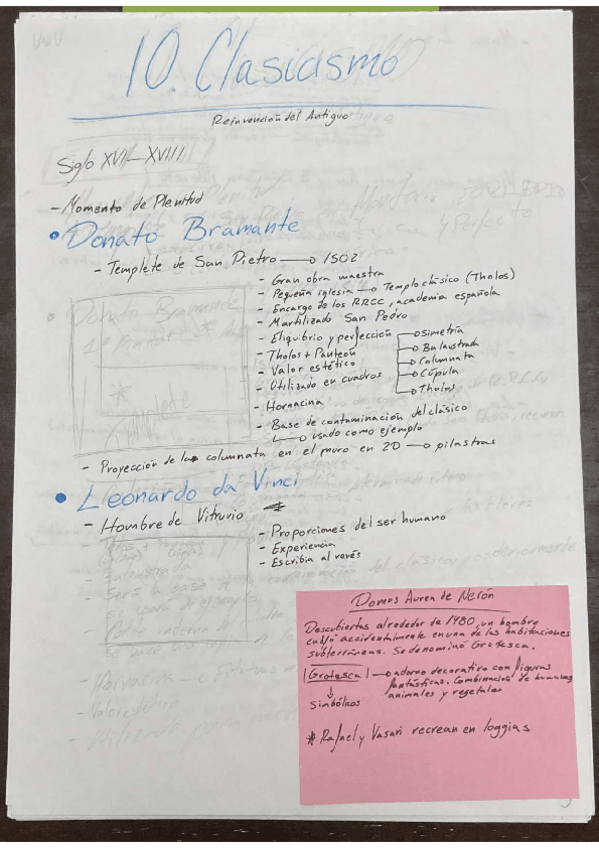 10. Clasicismo
Reinvención del Antiguo
Siglo XVII-XVIII
- Momento de Plenitud
• Donato Bramante
- Templete de San Pietro → 1502
- Gran obra maestra
- Pequeña iglesia → Templo clásico (Tholos)
- Encargo de los RRCC, academia española
- Martilizado San Pedro
- Eliquibrio y perfección → Simetría
- Tholos + Panteón → Balaustrada
- Valor estético → Columnata
- Utilizado en cuadros → Cúpula
→ Tholos
- Hornacina
- Base de contaminación del clásico
→ usado como ejemplo
- Proyección de la columnata en el muro en 2D → pilastras
• Leonardo da Vinci
- Hombre de Vitruvio *
- Proporciones del ser humano
- Experiencia
- Escribía al revés
Domus Aurea de Nerón
Descubiertas alrededor de 1480, un hombre
cayó accidentalmente en una de las habitaciones
subterráneas. Se denominó Grotesca.
|Grotesca| → adorno decorativo con figuras
fantásticas. Combinación de humanos,
animales y vegetales
↓
Simbólicos
* Rafael y Vasari recrean en loggias